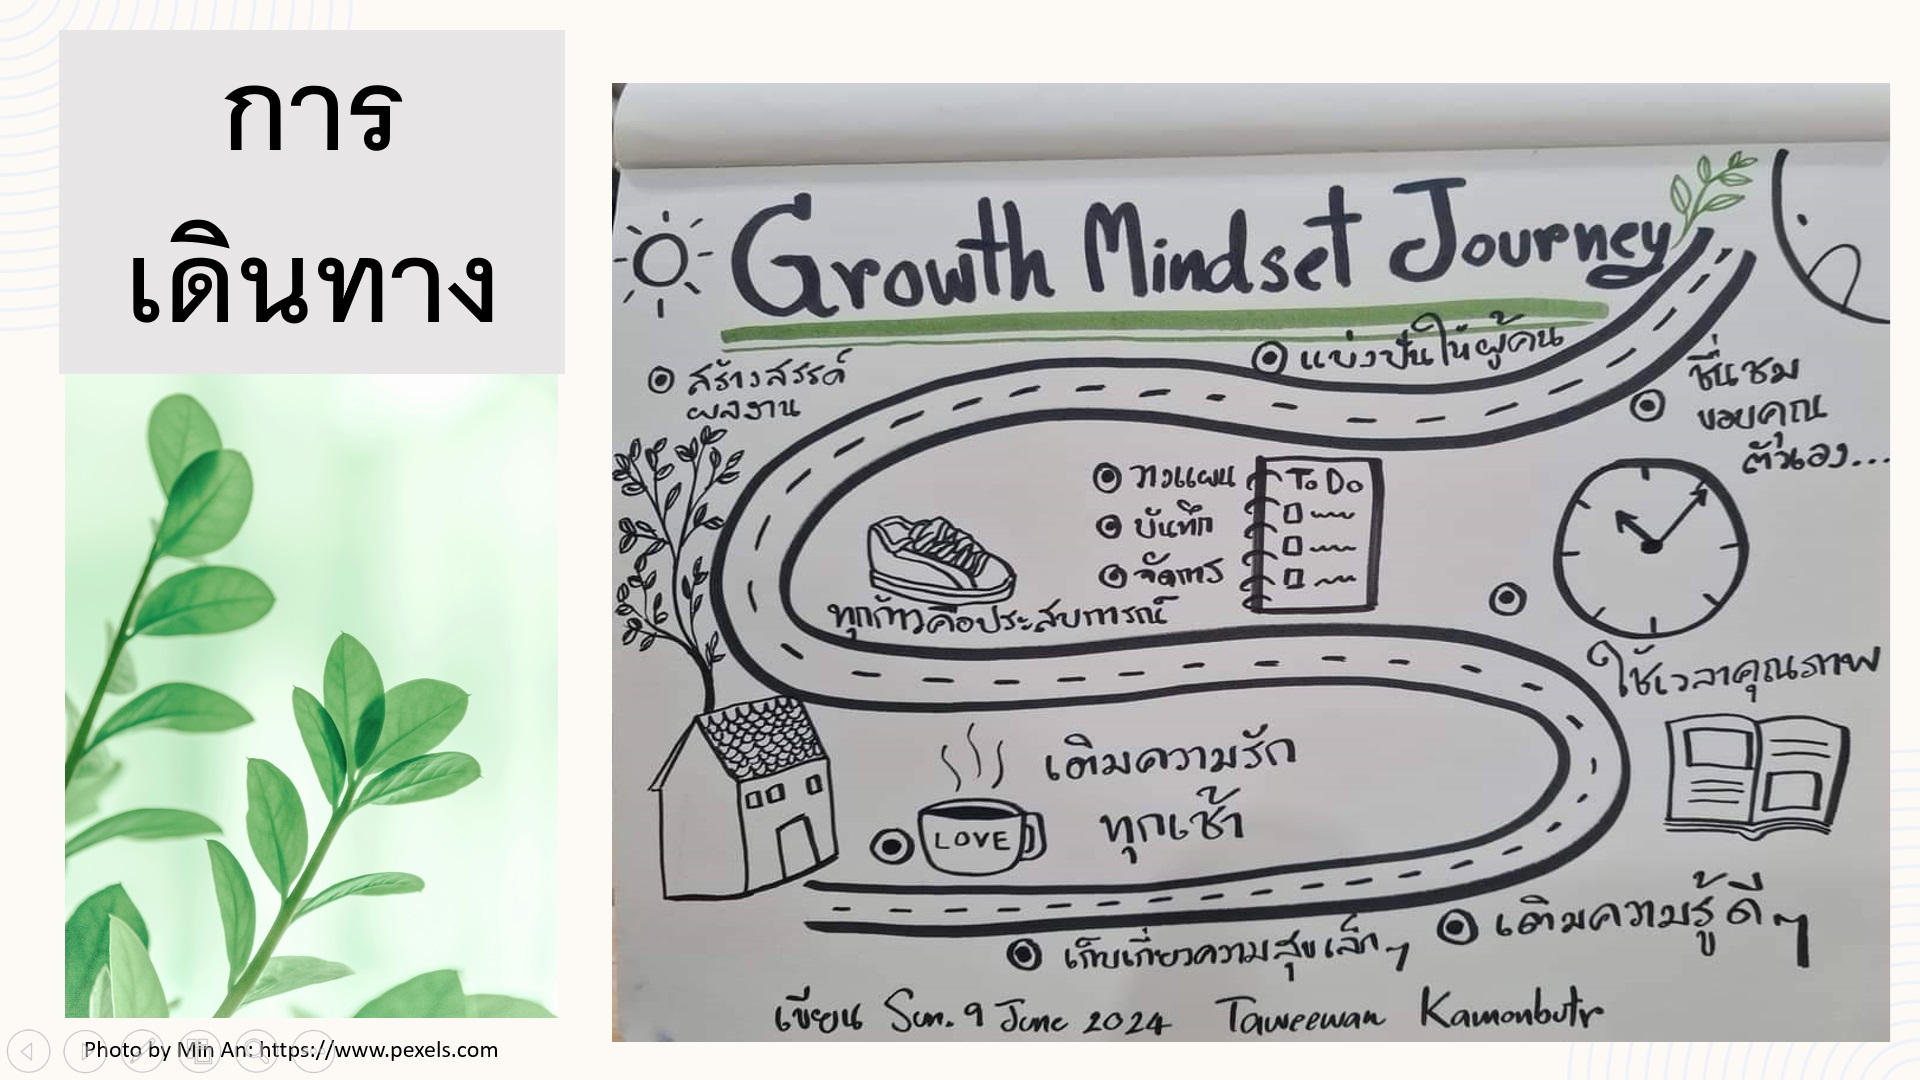 การ
เดินทาง
Growth Mindset Journey
แบ่งปันให้ผู้คน
สร้างสรรค์
ผลงาน
ชื่นชม
ขอบคุณ
ตัวเอง...
วางแผน
บันทึก
จัดการ
To Do
ทุกก้าวคือประสบการณ์
ใช้เวลาคุณภาพ
เติมความรัก
ทุกเช้า
LOVE
เติมความรู้ดีๆ
เก็บเกี่ยวความสุขเล็กๆ
เขียน Sun. 9 June 2024 Taweewan Kamonbutr
Photo by Min An: https://www.pexels.com